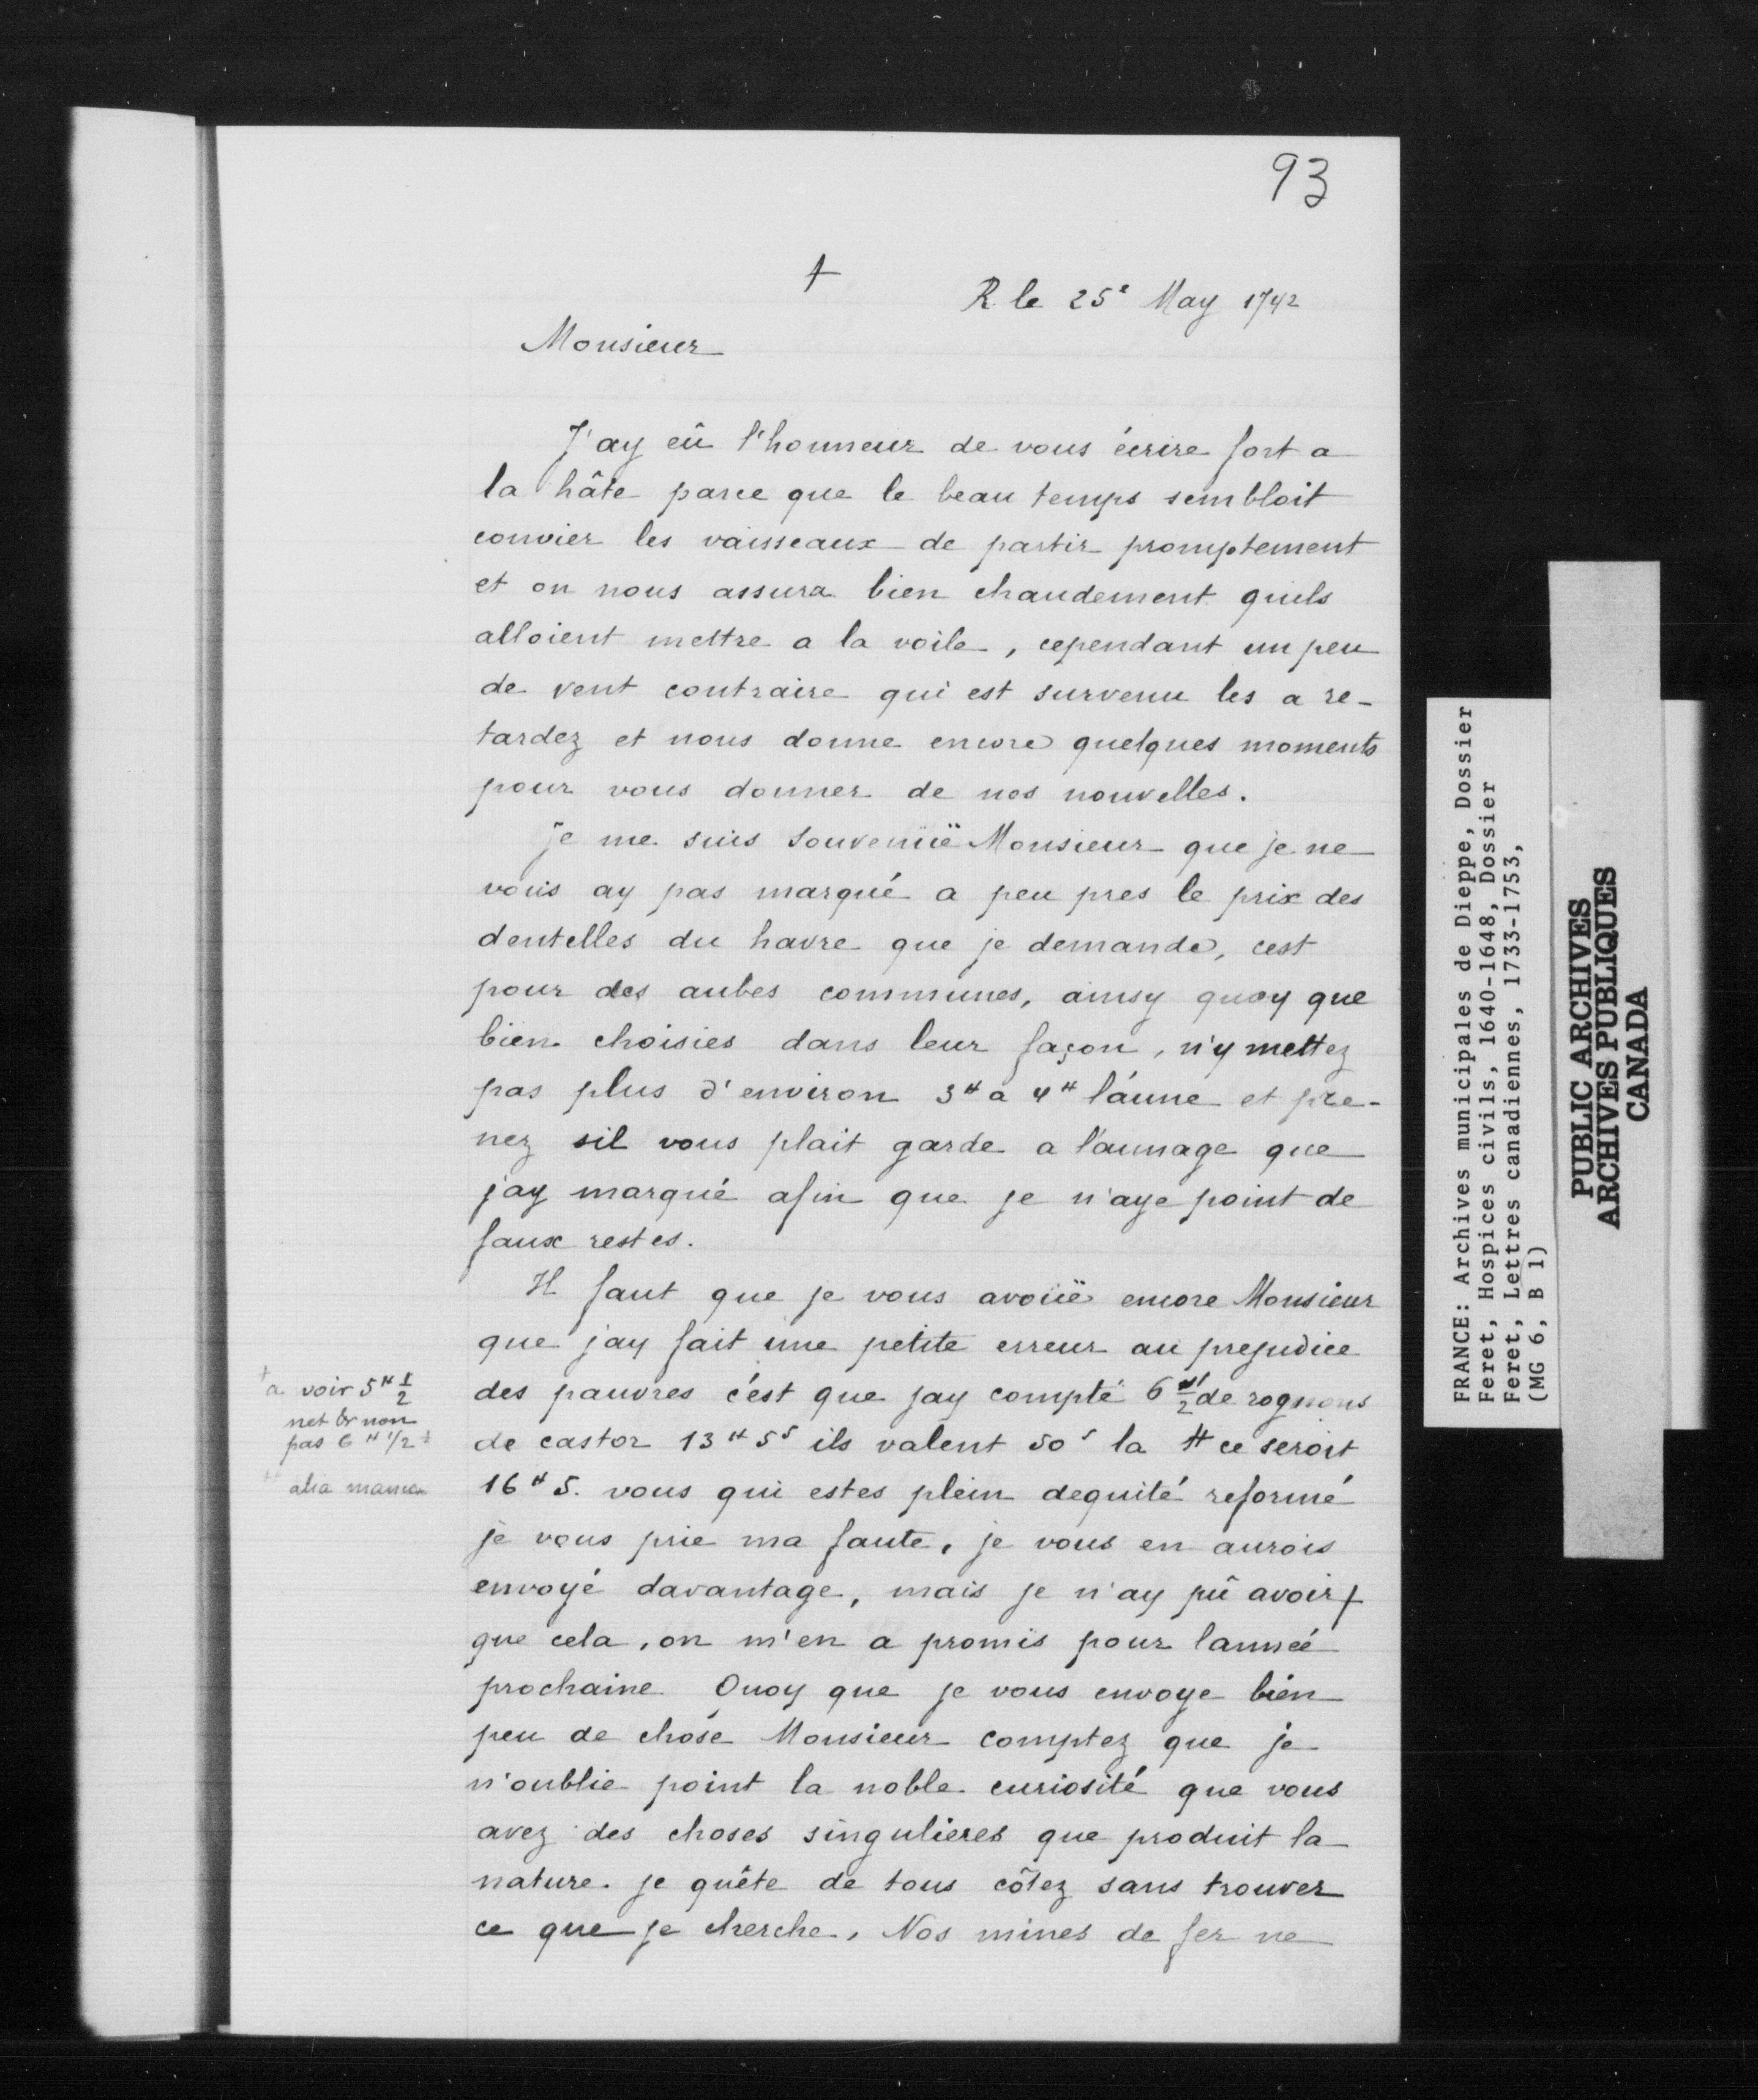 93
+
R. le 25e May 1742
Monsieur
J'ay eû l'honneur de vous écrire fort a
la hâte parce que le beau temps sembloit
convier les vaisseaux de partir promptement
et on nous assura bien chaudement quils
alloient mettre a la voile, cependant un peu
de vent contraire qui est survenu les a re-
tardez et nous donne encore quelques moments
pour vous donner de nos nouvelles.
je me suis souvenüe Monsieur que je ne
vous ay pas marqué a peu pres le prix des
dentelles du havre que je demande, cest
pour des aubes communes, ainsy quoy que
bien choisies dans leur façon, n'y mettez
pas plus d'environ 3# a 4# l'aune et pre-
nez sil vous plait garde a l'aunage que
j'ay marqué afin que je n'aye point de
faux restes.
Il faut que je vous avoüe encore Monsieur
que j'ay fait une petite erreur au prejudice
des pauvres c'est que jay compté 6# 1/2 de rognons
de castor 13# 5s ils valent 50s la # ce seroit
16# 5. vous qui estes plein dequité reformé
je vous prie ma faute, je vous en aurois
envoyé davantage, mais je n'ay pû avoir +
que cela, on m'en a promis pour lanneé
prochaine Quoy que je vous envoye bien
peu de chose Monsieur comptez que je
n'oublie point la noble curiosité que vous
avez des choses singulieres que produit la
nature. je quête de tous côtez sans trouver
ce que je cherche, Nos mines de fer ne
+ a voir 5# 1/2
net & non
pas 6# 1/2
alia manu
FRANCE: Archives municipales de Dieppe, Dossier
Feret, Hospices civils, 1640-1648, Dossier
Feret, Lettres canadiennes, 1733-1753,
(MG 6, B 1)
PUBLIC ARCHIVES
ARCHIVES PUBLIQUES
CANADA